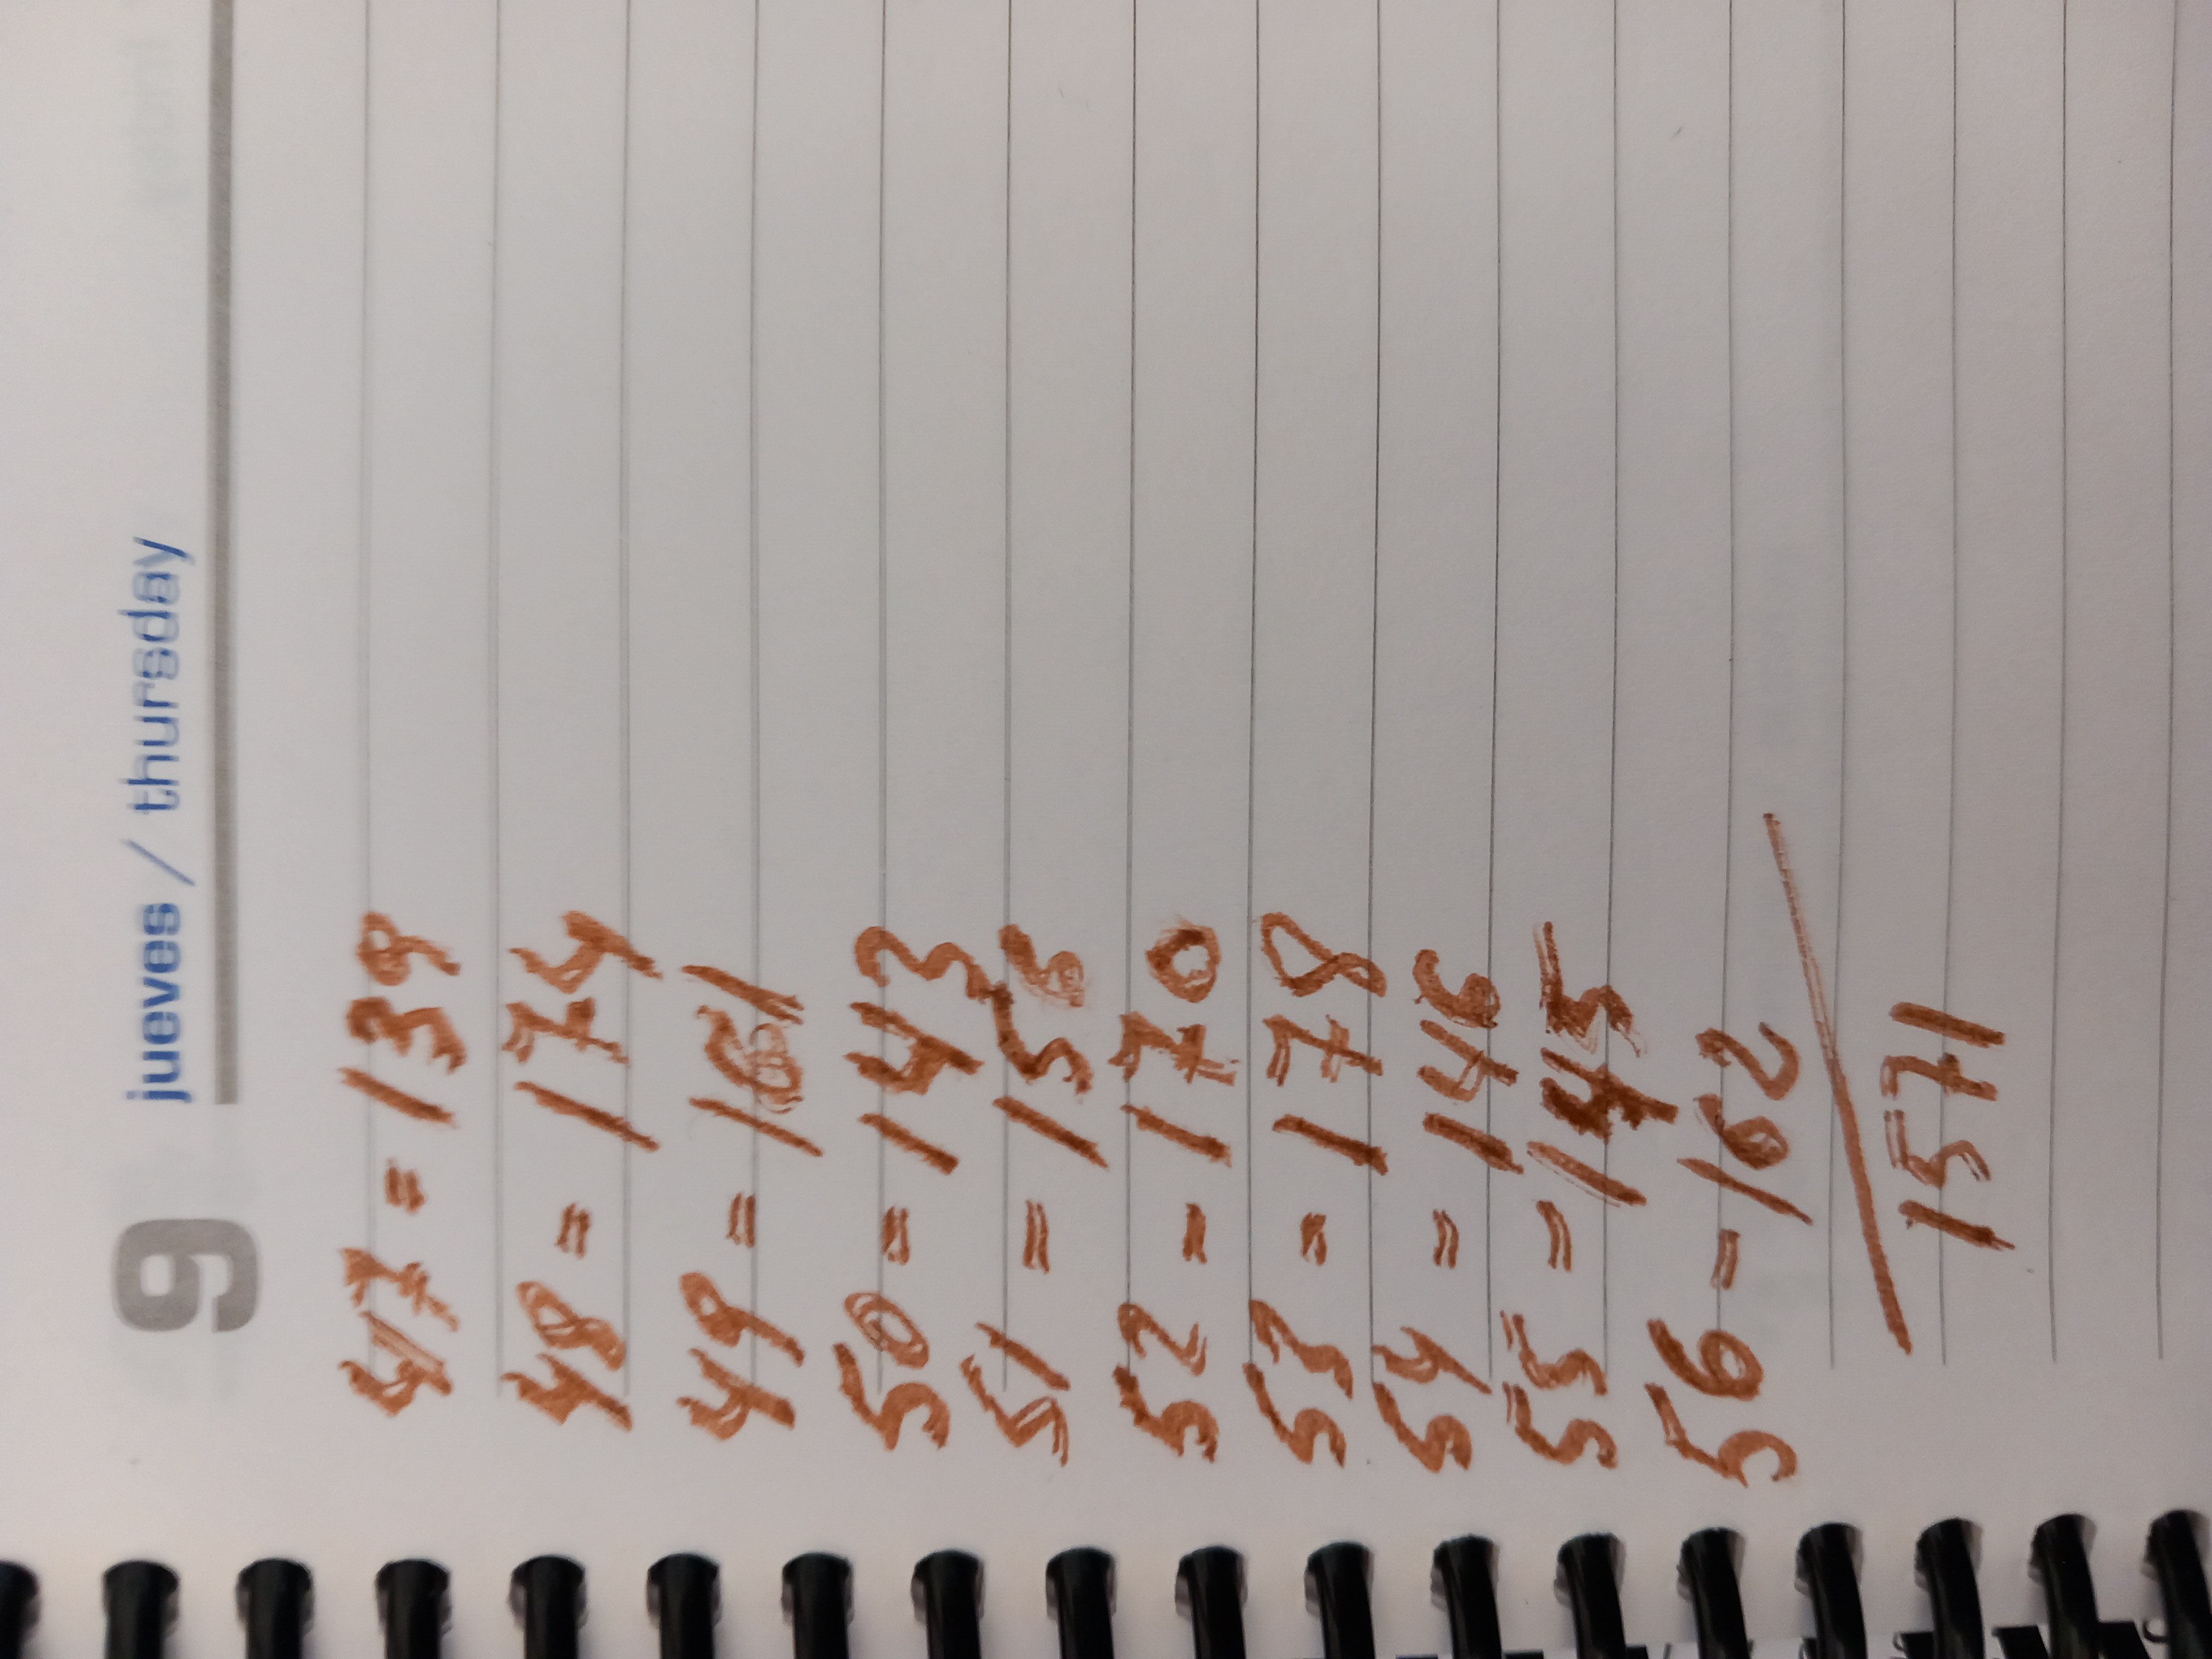 9 jueves / thursday
47 = 139
48 = 174
49 = 161
50 = 143
51 = 156
52 = 170
53 = 178
54 = 146
55 = 145
56 = 162
1571